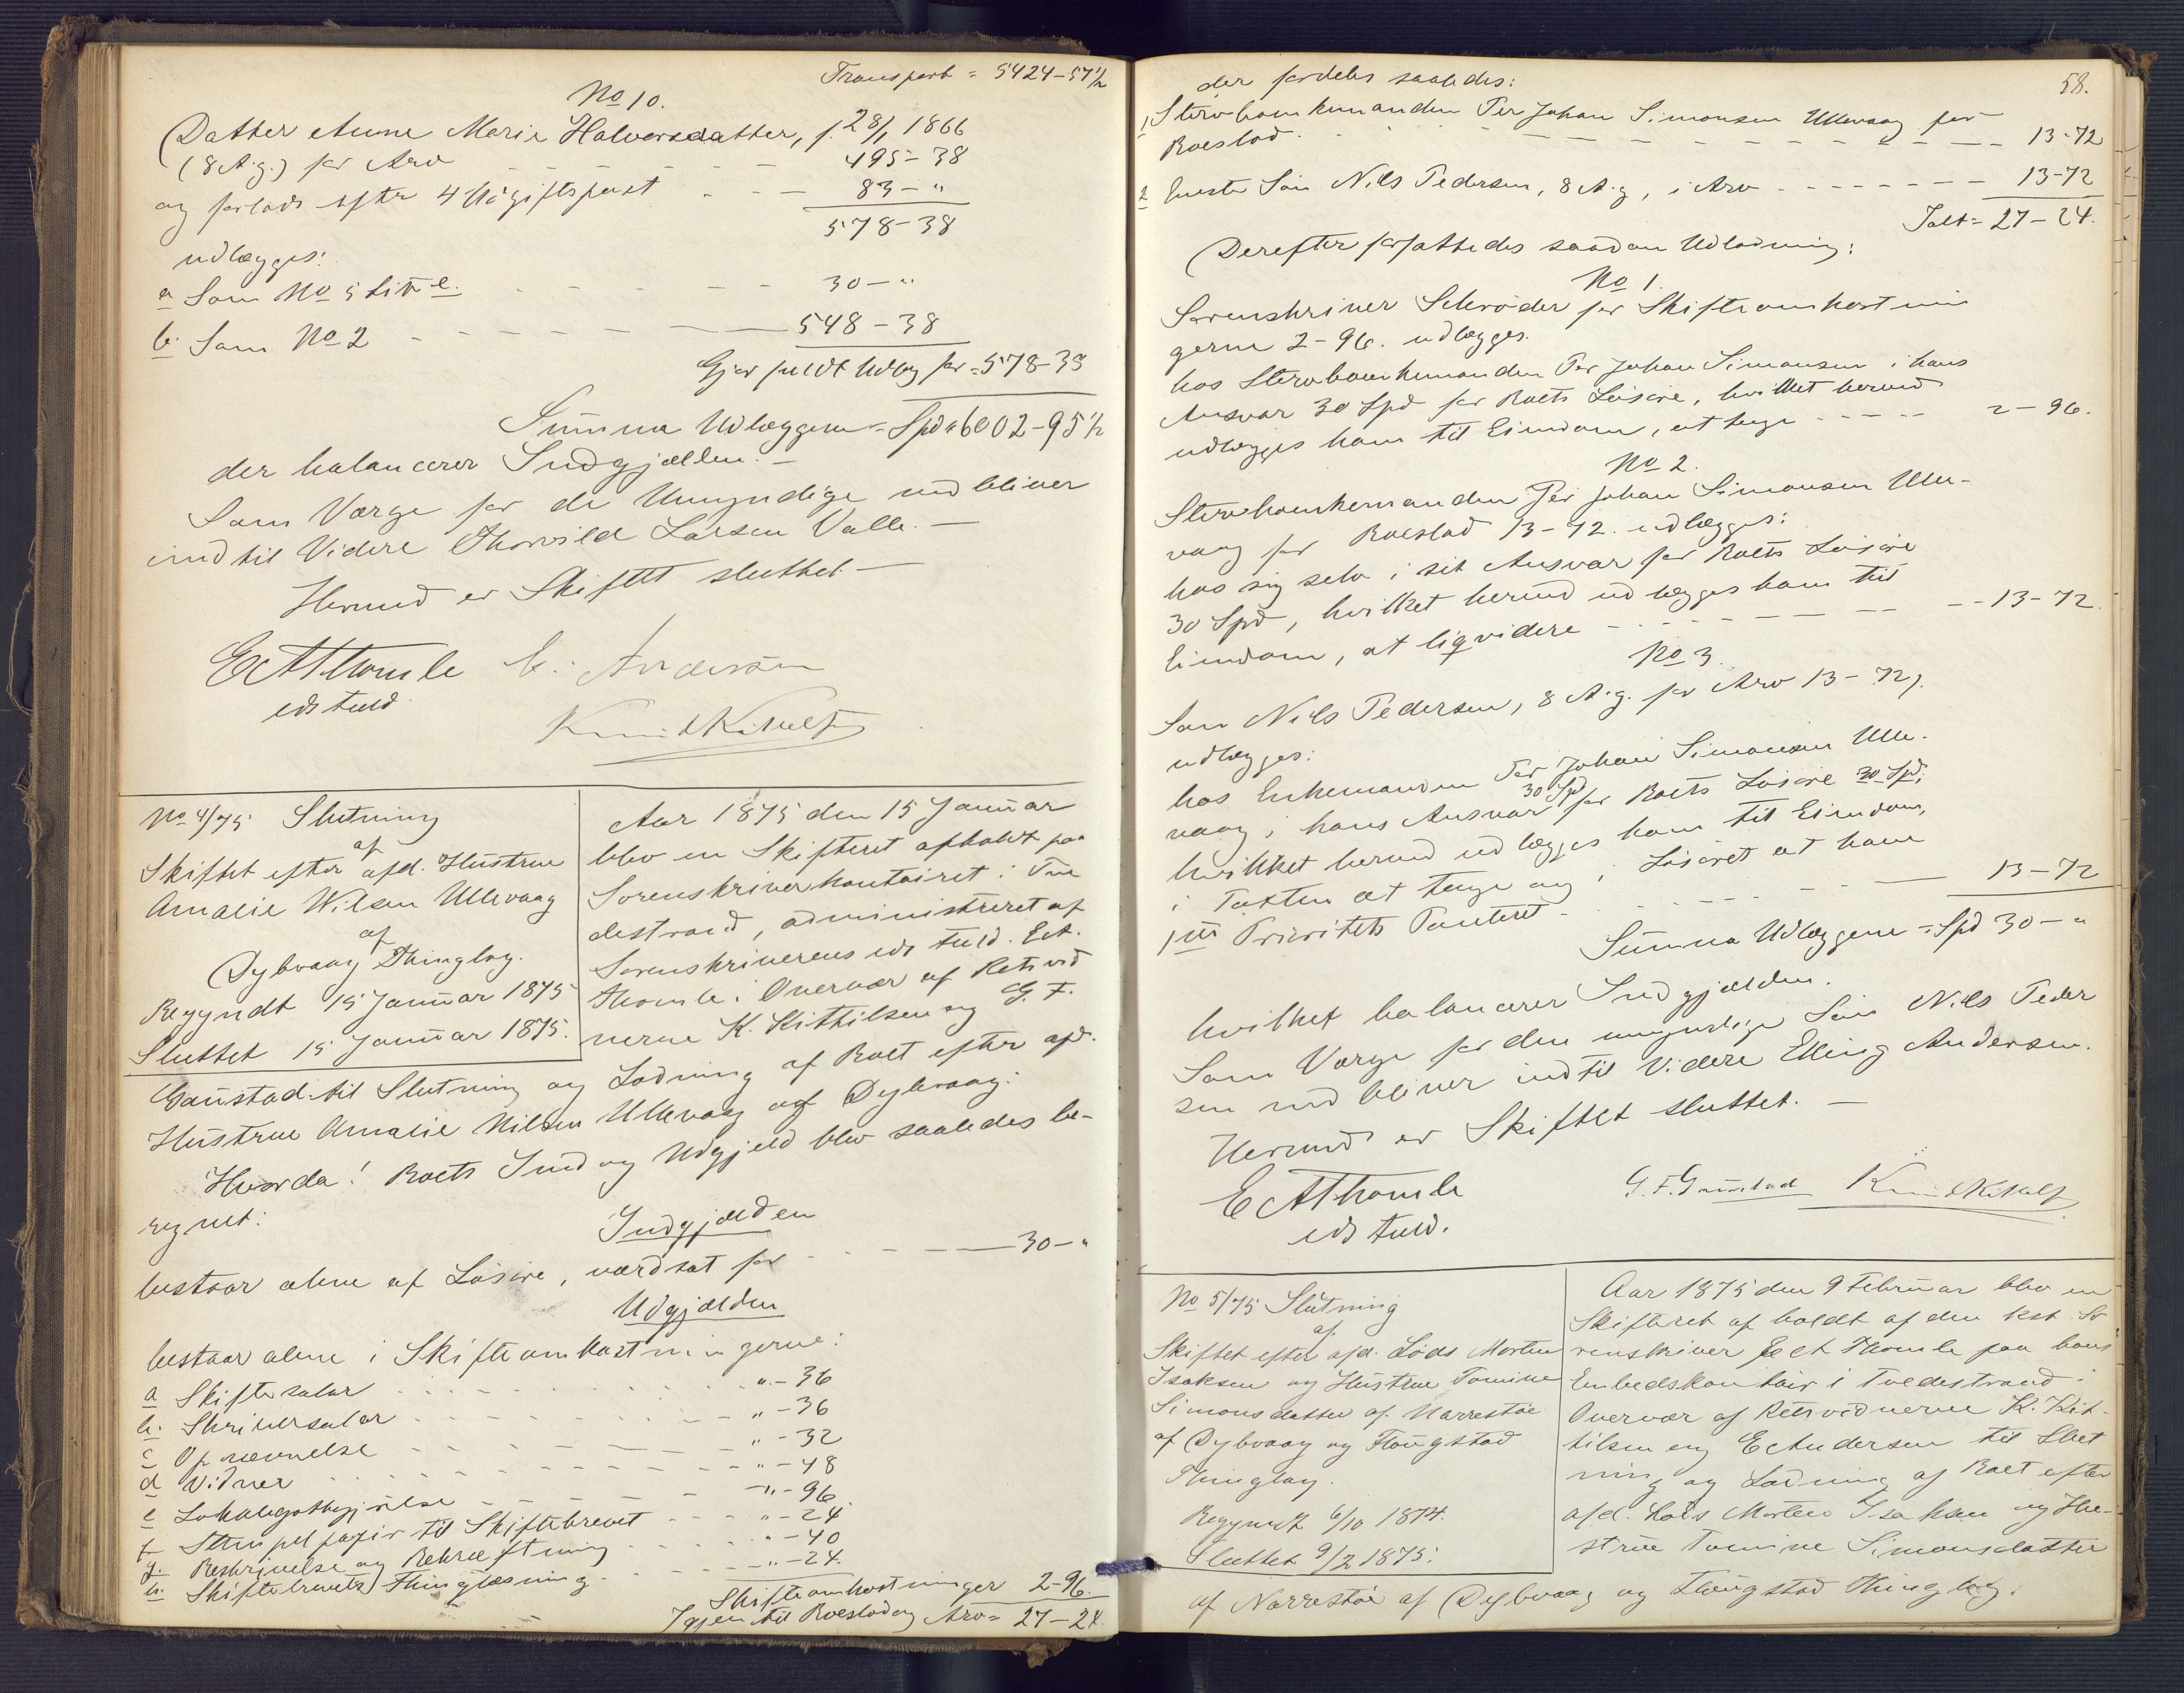 Transport = 5424-57½
No 10.
Datter Anne Marie Halvorsdatter, f. 28/1 1866
(8 A. g.) for Arv - - - 495-38
og forlods efter 4 Udgiftspost - - - 83-"
578-38
udlægges:
a Som No 5 Litr e. - - - 30-"
b. Som No 2 - - - 548-38
Gjør fuldt Udlæg for = 578-38
Summa Udlæggene = Spd 6002-95½
der balancerer Indgjælden. -
Som Værge for de Umyndige vedbliver
indtil Videre Thorvild Larsen Valle. -
Hermed er Skiftet sluttet -
E A Thomle
eds fuld.
E. Anderson
Knud Kittilsen
No 4/75 Slutning
af
Skiftet efter afd. Hustrue
Amalie Nilsen Ullevaag
af
Dybvaag Thinglag.
Begyndt 15 Januar 1875
Sluttet 15 Januar 1875.
Aar 1875 den 15 Januar
blev en Skifteret afholdt paa
Sorenskriverkontoiret i Tve
destrand, administreret af
Sorenskriverens eds fuld. Ect.
Thomle i Overvær af Retsvid
nerne K. Kittilsen og G. F.
Gaustad til Slutning og Lodning af Boet efter afd.
Hustrue Amalie Nilsen Ullevaag af Dybvaag:
Hvorda! Boets Ind og Udgjæld blev saaledes be-
regnet:
Indgjælden
bestaar alene af Løsøre, værdsat for - - - 30-"
Udgjælden
bestaar alene i Skifteomkostningerne:
a Skiftesalær - - - "-36
b. Skriversalær - - - "-36
c Opnævnelse - - - "-32
d Vidner - - - "-48
e Lokalegodtgjørelse - - - "-96
f Stempelpapir til Skiftebrevet - - - "-24
g. Beskrivelse og Bekræftning - - - "-40
h. Skiftebrevets Thinglæsning - - - "-24.
Skifteomkostninger 2-96.
Igjen til Boeslod og Arv = 27-24.
58.
der fordeles saaledes:
1 Stervboenkemanden Per Johan Simonsen Ullevaag for
Boeslod - - - 13-72
2 Eneste Søn Nils Pedersen, 8 A. g, i Arv - - - 13-72
Ialt = 27-24.
Derefter forfattedes saadan Udlodning:
No 1.
Sorenskriver Schrøder for Skifteomkostnin
gerne 2-96. udlægges.
hos Stervboenkemanden Per Johan Simonsen i hans
Ansvar 30 Spd for Boets Løsøre, hvilket hermed
udlægges ham til Eiendom, at tage - - - 2-96.
No 2.
Stervboenkemanden Per Johan Simonsen Ulle-
vaag for Boeslod 13-72. udlægges:
hos sig selv i sit Ansvar for Boets Løsøre
30 Spd, hvilket hermed udlægges ham til
Eiendom, at liqvidere - - - 13-72.
No 3.
Søn Nils Pedersen, 8 A. g. for Arv 13-72,
udlægges:
hos Enkemanden Per Johan Simonsen Ulle-
vaag i hans Ansvar 30 Spd for Boets Løsøre 30 Spd,
hvilket hermed udlægges ham til Eiendom,
i Taxten at tage og i Løsøret at have
1ste Prioritets Panteret - - - 13-72
Summa Udlæggene = Spd 30-"
hvilket balancerer Indgjælden.
Som Værge for den umyndige Søn Nils Peder
sen vedbliver indtil Videre Elling Andersen.
Hermed er Skiftet sluttet. -
E A Thomle
eds fuld.
G. F. Gaustad Knud Kittilsen
No 5/75 Slutning
af
Skiftet efter afd. Lods Morten
Isaksen og Hustrue Tomine
Simonsdatter af Narrestøe
af Dybvaag og Flougstad
Thinglag.
Begyndt 6/10 1874.
Sluttet 9/2 1875.
Aar 1875 den 9 Februar blev en
Skifteret afholdt af den kst. So
renskriver Ect Thomle paa hans
Embedskontoir i Tvedestrand i
Overvær af Retsvidnerne K. Kit-
tilsen og E Andersen til Slut
ning og Lodning af Boet efter
afd. Lods Morten Isaksen og Hu-
strue Tomine Simonsdatter
af Narrestøe af Dybvaag og Flougstad Thinglag.